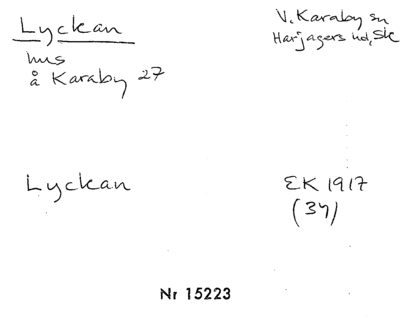 Lyckan
V. Karaby sn
Harjagers hd, Sk
hus
å Karaby 27
Lyckan
EK 1917
(34)
Nr 15223